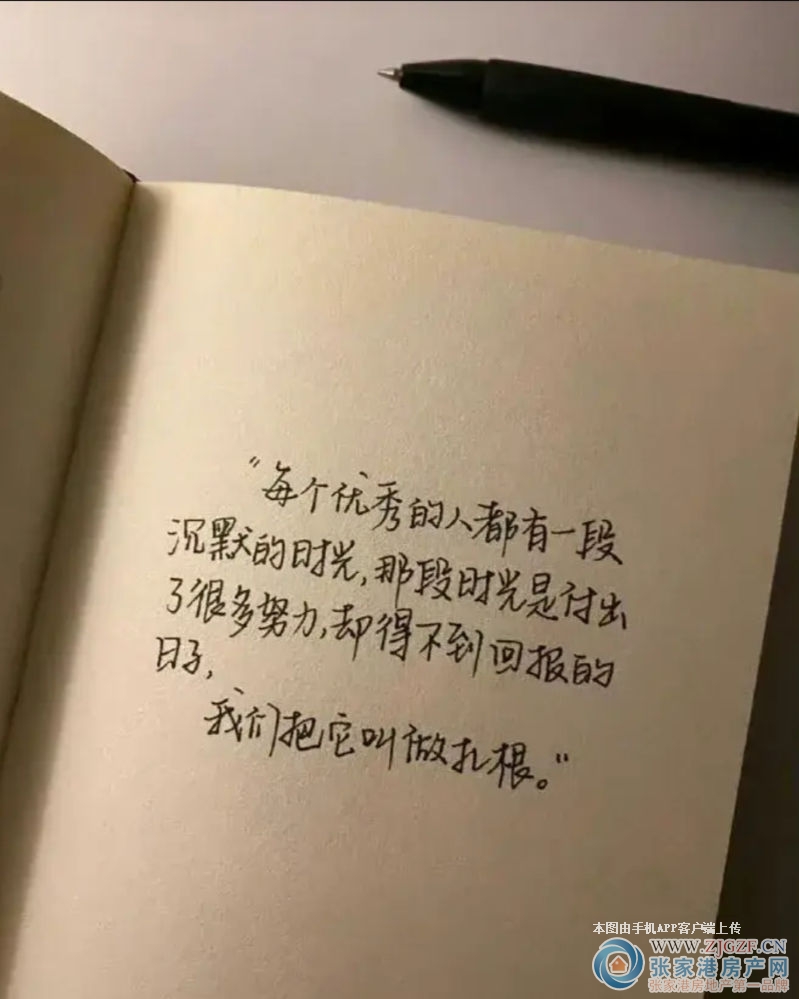 “每个优秀的人都有一段
沉默的时光,那段时光是付出
了很多努力,却得不到回报的
日子,
我们把它叫做扎根。”
本图由手机APP客户端上传
WWW.ZJGZF.CN
张家港房产网
张家港房地产第一品牌